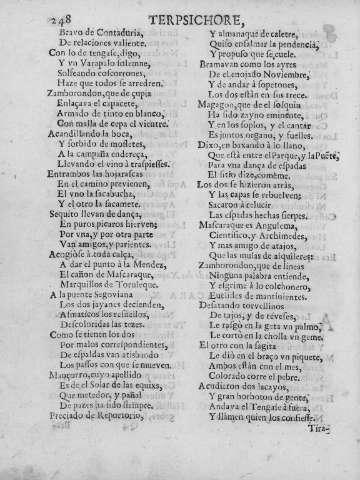 248 TERPSICHORE,
Bravo de Contaduria,
De relaciones valiente.
Con lo de tengase, digo,
Y vn Varapalo solemne,
Solfeando coscorrones,
Haze que todos se arredren.
Zamborondon, que de çupia
Enlaçava el capacete,
Armado de tinto en blanco,
Con malla de cepa el vientre.
Acandilando la boca,
Y sorbido de mofletes,
A la campaña endereça,
Llevando el vino à traspiesses.
Entrambos las hojarascas
En el camino previenen,
El vno la sacabucha,
Y el otro la sacamete.
Sequito llevan de dança,
En puros picaros hierven;
Por vna, y por otra parte
Van amigos, y parientes.
Acogiòse à toda calça,
A dar el punto à la Mendez,
El cañon de Mascaraque,
Marquillos de Toruleque.
A la puente Segoviana
Los dos jayanes decienden,
Asmaticos los resuellos,
Descoloridas las tezes.
Como se tienen los dos
Por malos correspondientes,
De espaldas van atisbando
Los passos con que se mueven.
Mançorro, cuyo apellido
Es de el Solar de las equixs,
Que metedor, y pañal
De pazes ha sido siempre.
Preciado de Repertorio,
Y almanaque de caletre,
Quiso ensalmar la pendencia,
Y propuso que se cuele.
Bramavan como los ayres
De el enojado Noviembre,
Y de andar à sopetones,
Los dos estàn en sus trece.
Magagon, que de el sosquin
Ha sido zayno eminente,
Y en los soplos, y el cantar
Es juntos organo, y fuelles.
Dixo, en baxando à lo llano,
Que està entre el Parque, y la Puete,
Para vna dança de espadas
El sitio dize, comème.
Los dos se hizieron atràs,
Y las capas se rebuelven;
Sacaron à relucir
Las espadas hechas sierpes.
Mascaraque es Angulema,
Cientifico, y Archimedes,
Y mas amigo de atajos,
Que las mulas de alquileres:
Zamborondon, que de lineas
Ninguna palabra entiende,
Y esgrime à lo colchonero,
Euclides de mantinientes.
Desatando torvellinos
De tajos, y de reveses,
Le rasgò en la geta vn palmo,
Le cortò en la cholla vn geme.
El otro con la sagita
Le diò en el braço vn piquete,
Ambos estàn con el mes,
Colorado corre el pebre.
Acudieron dos lacayos,
Y gran borboton de gente,
Andava el Tengase afuera,
Y llamen quien los confiesse.
Tira-